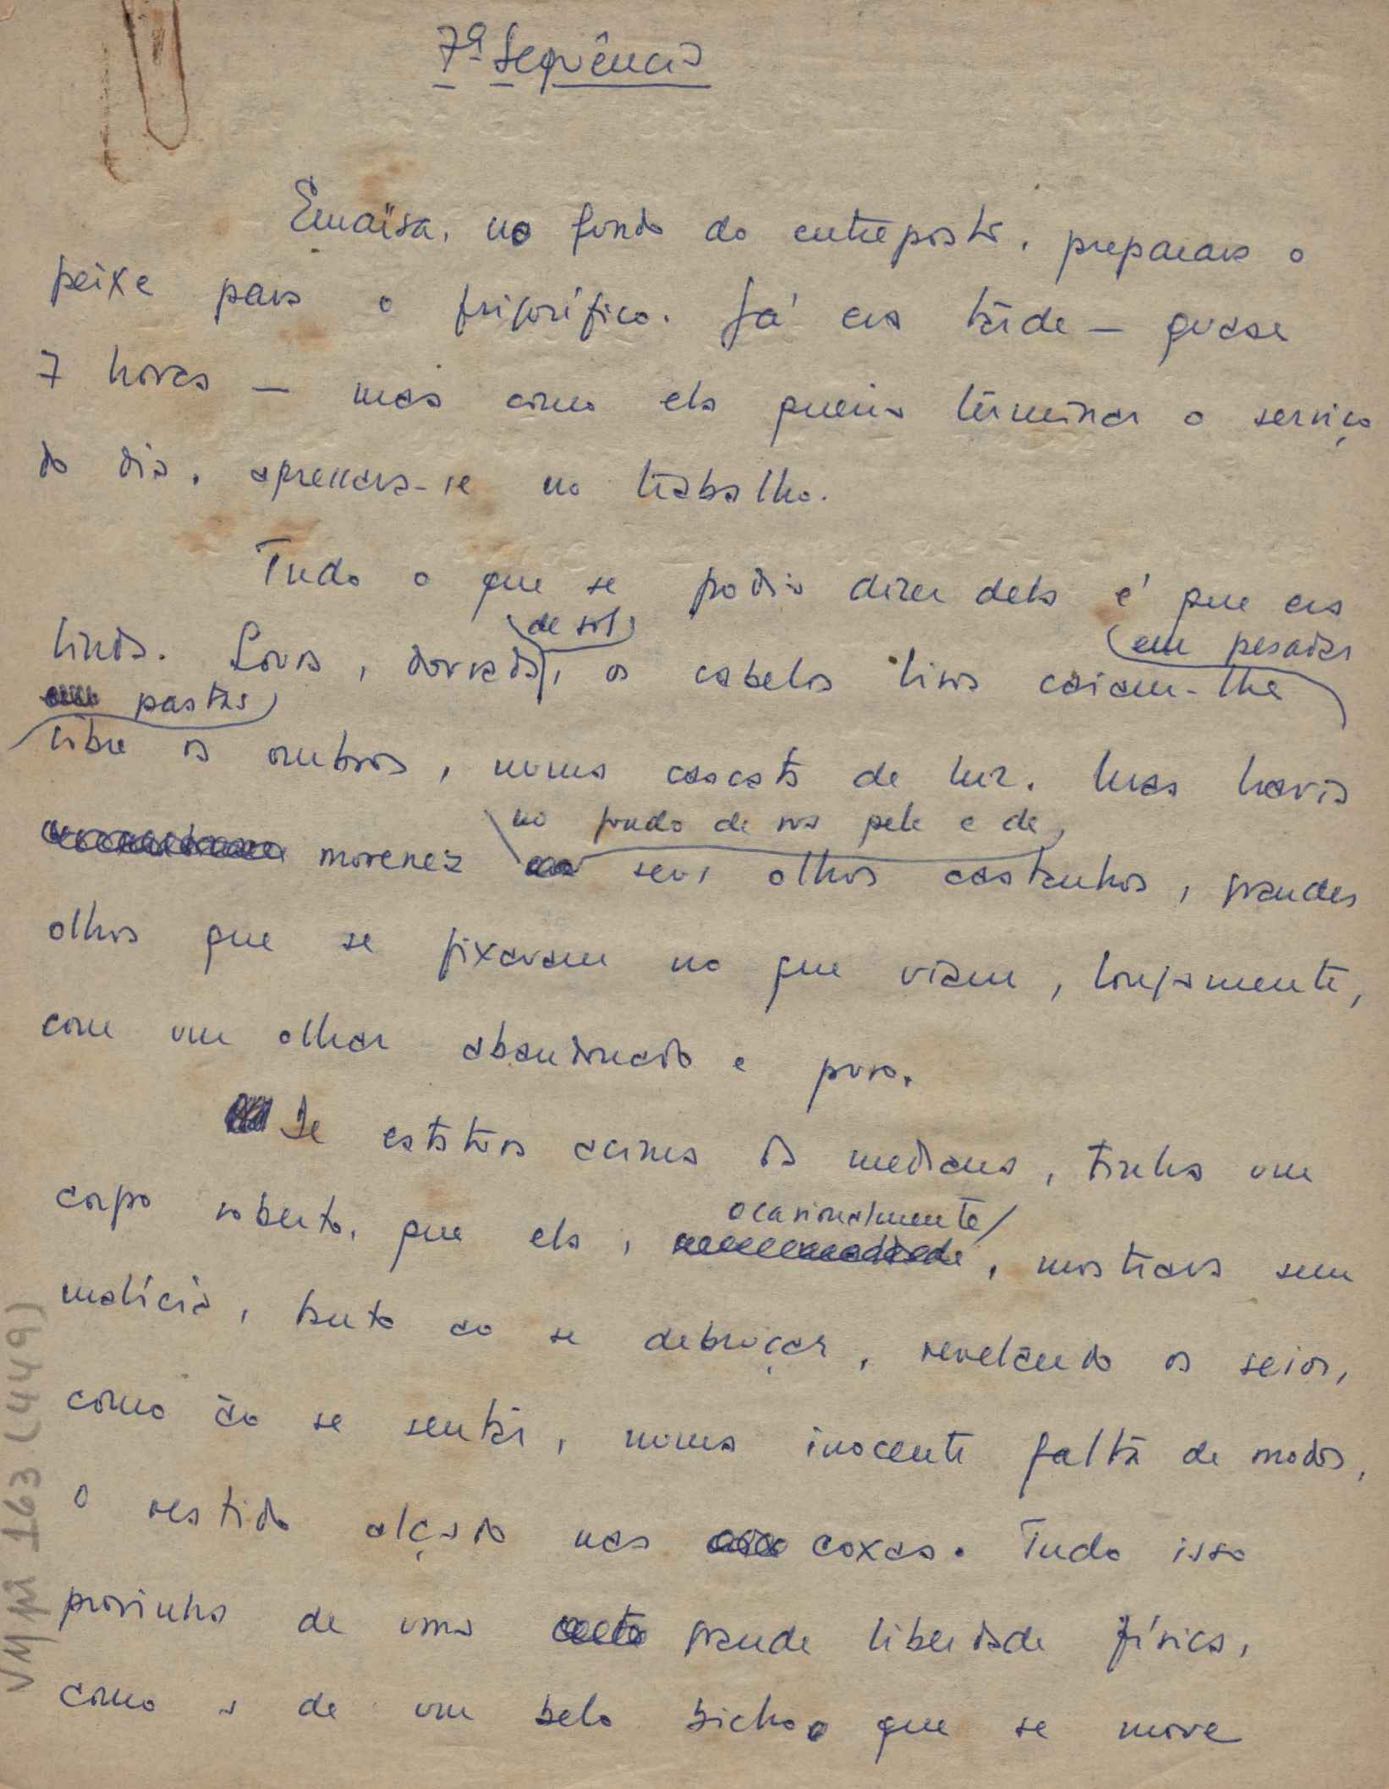 7ª Sequência
Emaïsa, no fundo do entreposto, preparava o
peixe para o frigorífico. Já era tarde — quase
7 horas — mas como ela queria terminar o serviço
do dia, apressava-se no trabalho.
Tudo o que se podia dizer dela é que era
de sol
em pesadas
linda. Loura, dourada, os cabelos lisos caíam-lhe
pastas
sobre os ombros, numa cascata de luz. Mas havia
no fundo de sua pele e de
morenez seus olhos castanhos, grandes
olhos que se fixavam no que viam, longamente,
com um olhar abandonado e puro.
De estatura acima da mediana, tinha um
ocasionalmente
corpo soberbo, que ela, , mostrava sem
malícia, tanto ao se debruçar, revelando os seios,
como ao se sentar, numa inocente falta de modos,
o vestido alçado nas coxas. Tudo isso
provinha de uma grande liberdade física,
como a de um belo bicho que se move
VM pi 163 (449)